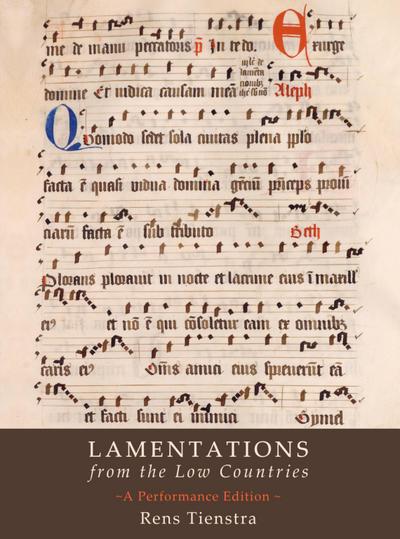 me de manu peccatoris p̄ In te do. Exurge
domine Et iudica causam meā Aleph
Quomodo sedet sola ciuitas plena pplo
facta ē quasi vidua domina gētiū pͥnceps prouī
ciarū facta ē sub tributo Beth
Plorans plorauit in nocte et lacrime eius ī maxill
eiꝰ et nō ē qui cōsoletur eam ex omnibꝫ
caris eiꝰ Om̄s amici eius spreuerūt eā
et facti sunt ei inimici Gymel
LAMENTATIONS
from the Low Countries
~A Performance Edition ~
Rens Tienstra